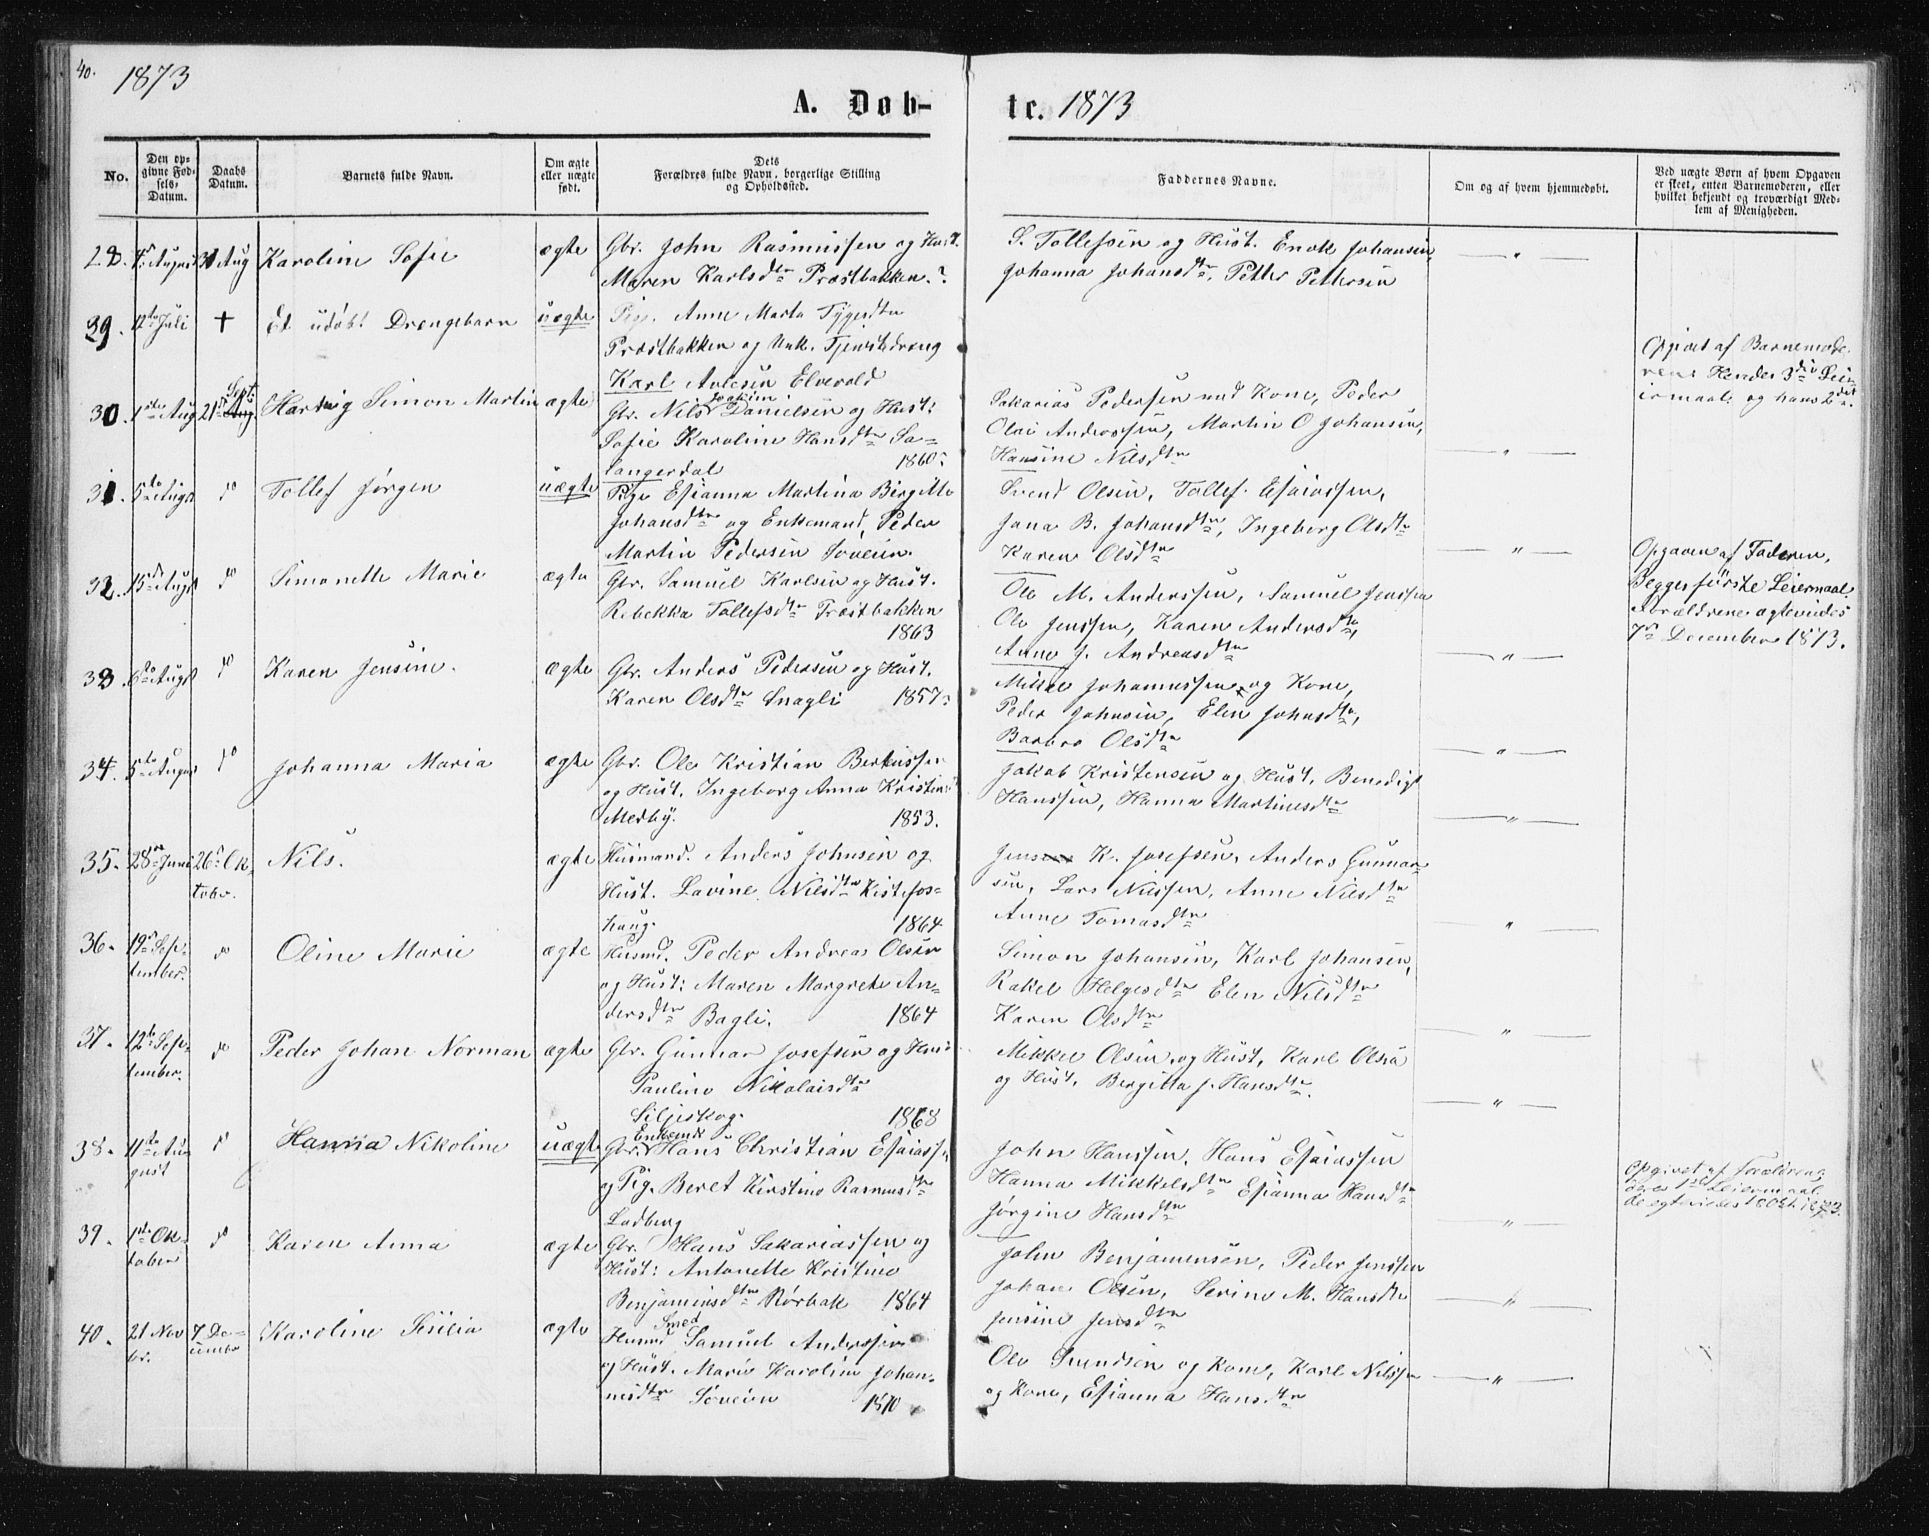 40.
1873
A. Døb-
te. 1873
No.
Den op-
givne Fød-
sels-
Datum.
Daabs
Datum.
Barnets fulde Navn.
Om ægte
eller uægte
født.
Dets
Forældres fulde Navn, borgerlige Stilling
og Opholdssted.
Faddernes Navne.
Om og af hvem hjemmedøbt.
Ved uægte Børn af hvem Opgaven
er skeet, enten Barnemoderen, eller
hvilket bekjendt og troværdigt Med-
lem af Menigheden.
28. August 31 Aug Karoline Sofie ægte Gbr. John Rasmussen og Hust.
Maren Karlsdtr Præstbakken.?
S. Tollefsen og Hust. Enok Johansen,
Johanna Johansdtr, Petter Pettersen
29. 12te Juli + Et udøbt Drengebarn uægte Pige. Anne Marta Tygesdtr
Præstbakken og Unk. Tjenstedreng
Karl Elvevold
Opgivet af Barnemode-
rens Hendes 3die Lei-
ermaal og hans 2det.
30. 1ste Aug 21 Sept. Aug. Hartvig Simon Martin ægte Gbr. Nils Joakim Danielsen og Hust:
Sofie Karoline Hansdtr Sa-
langerdal 1860
Sakarias Pedersen med Kone, Peder
Olai Anderssen, Martin O Johansen,
Hansine Nilsdtr
31. 5te Augst do Tollef Jørgen uægte Pige Esianna Martina Birgitte
Johansdtr og Enkemand Peder
Martin Pedersen Søveien.
Svend Olsen, Tollef Esaiassen,
Jana B. Johansdtr, Ingeborg Olsdtr
Karen Olsdtr
Opgaven af Faderen,
Begges første Leiermaal.
Forældrene ægtevies
7de December 1873.
32. 15de Augst do Simonette Marie ægte Gbr. Samuel Karlsen og Hust.
Rebekka Tollefsdtr Præstbakken
1863
Ole M. Anderssen, Samuel Jenssen
Ole Jenssen, Karen Andersdtr,
Anne J. Andreasdtr
33. 6te Augst do Karen Jensine. ægte Gbr. Anders Pedersen og Hust.
Karen Olsdtr Snagli 1857
Mikkel Johannessen og Kone,
Peder Johnsen, Elen Johnsdtr,
Barbro Olsdtr
34. 5te August do Johanna Maria ægte Gbr. Ole Kristian Berkussen
og Hust. Ingeborg Anna Kristine
Medby. 1853.
Jakob Kristensen og Hust. Benedigt
Hanssen, Hanna Martinesdtr
35. 28de Juni 26 Ok- Nils. ægte Husmand. Anders Johnsen og
tobr. Hust. Lavine Nilsdtr Kistefos-
haug. 1864
Jens K. Josefsen, Anders Gunnar-
sen, Lars Nilssen, Anne Nilsdtr
Anne Tomasdtr
36. 19de Sep- do Oline Marie ægte Husmd. Peder Andreas Olsen
tember. og Hust: Maren Margrete An-
dersdtr Bagli. 1864
Simon Johansen, Karl Johansen,
Rakel Helgesdtr Elen Nilsdtr
Karen Olsdtr
37. 12te Sep- do Peder Johan Norman ægte Gbr. Gunnar Josefsen og Hust
tember. Pauline Nikolaisdtr
Siljeskog. 1868
Mikkel Olsen og Hust, Karl Olsen
og Hust. Bergitta J. Hansdtr.
38. 11te Au- do Hanna Nikoline uægte Gbr. Enkemd Hans Christian Esaiassen
gust og Pig. Beret Kirstine Rasmusdtr
Ladberg
John Hanssen, Hans Esaiassen
Hanna Mikkelsdtr Esianna Hansdtr
Jørgine Hansdtr
Opgivet af Forældrene,
deres 1ste Leiermaal.
de egtevies 18 Okt 1873.
39. 1ste Ok- do Karen Anna ægte Gbr. Hans Sakariassen og
tober Hust: Antonette Kristine
Benjaminsdtr Rørbak 1864
John Benjaminsen, Peder Jenssen
Johan Olsen, Serine M. Hansdtr
Jensine Jensdtr
40. 21 Nov 7 De- Karoline Sesilia ægte Husmd Smed Samuel Anderssen
br. cembr og Hust. Marie Karoline Johan-
nesdtr Søveien 1870
Ole Svendsen og Kone, Karl Nilssen
og Kone, Esianna Hansdtr